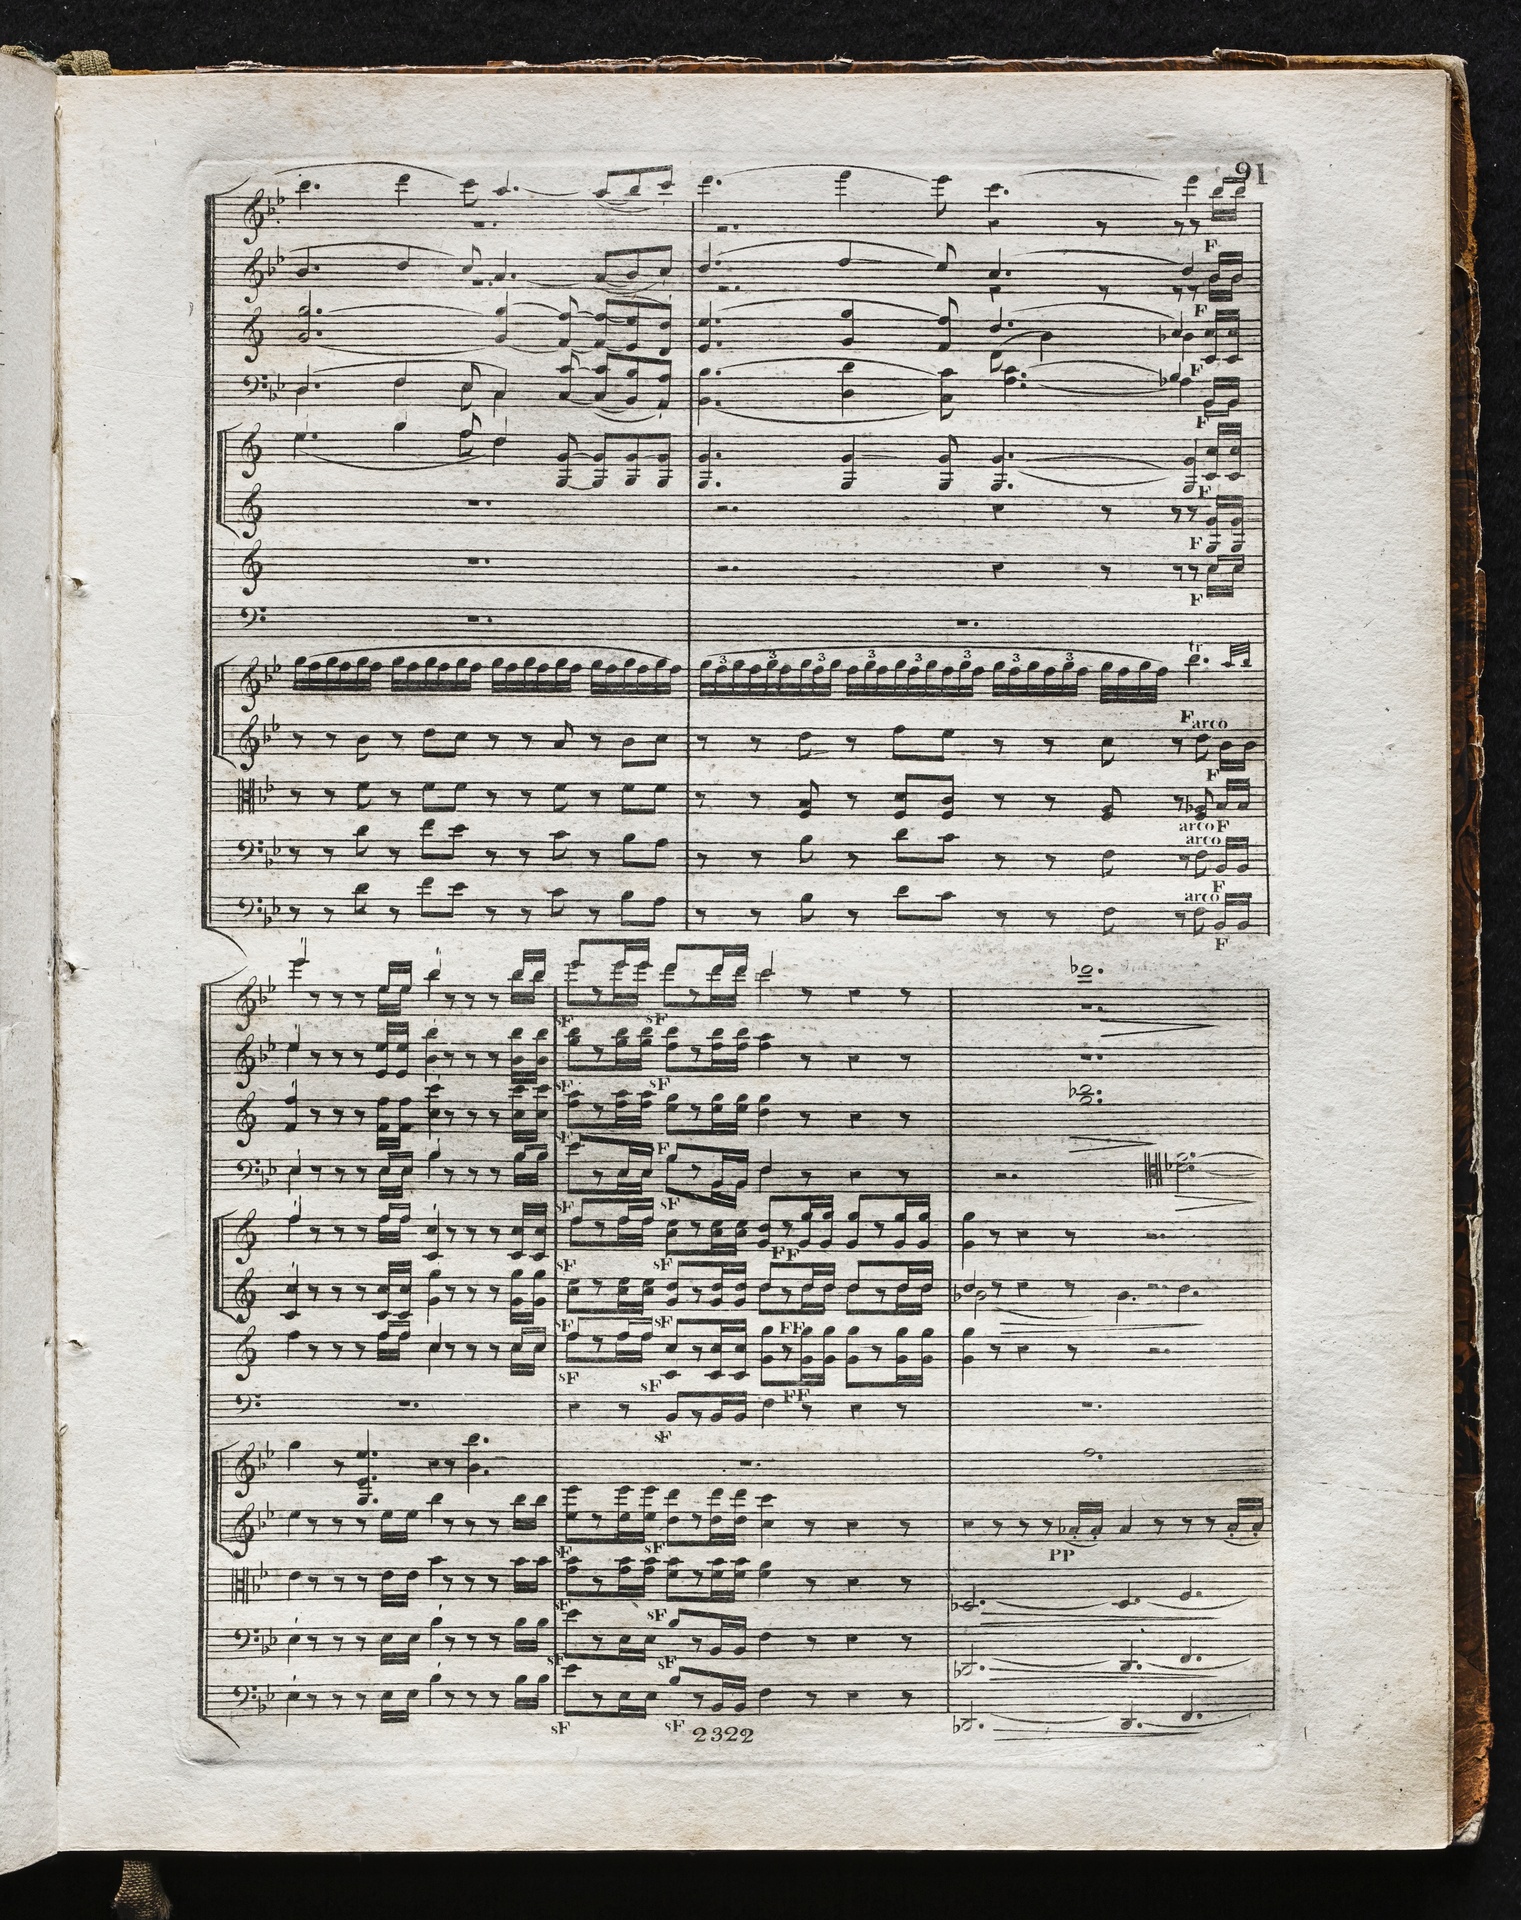 91
F
F
F
F
F
F
F
3 3 3 3 3 3 3 3
tr
F arco
F
arco F
arco
F
arco
F
sF sF
sF sF
sF F
sF sF
sF sF FF
sF sF FF
sF sF FF
sF
sF sF
PP
sF sF
sF sF
sF sF
2322